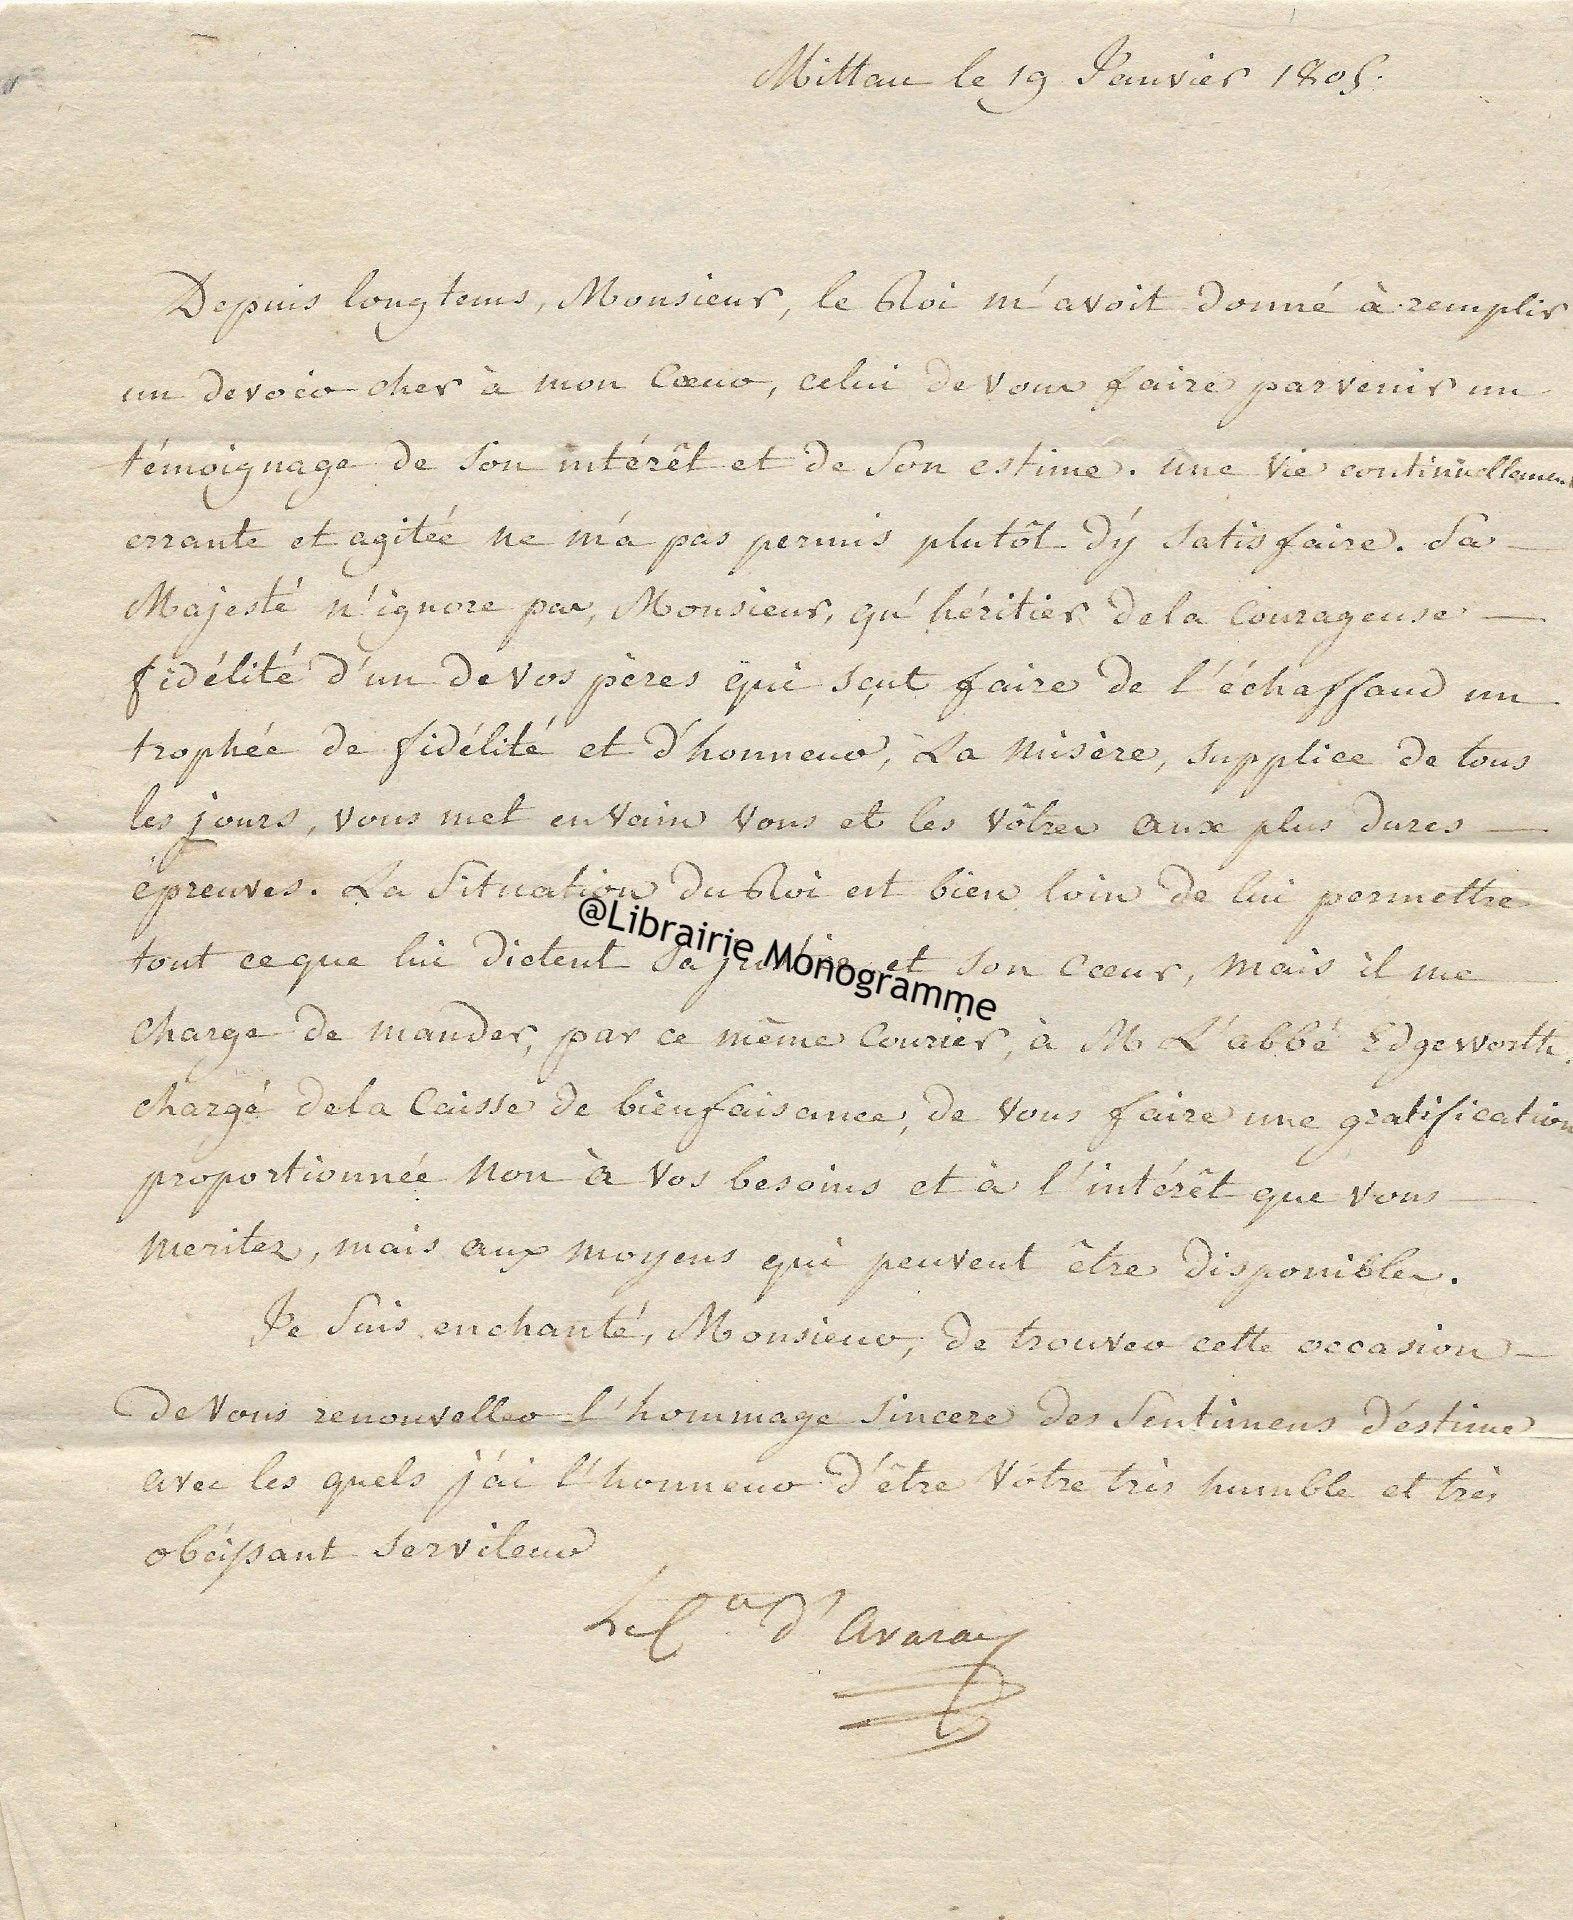 Mittau le 19 Janvier 1805.
Depuis longtems, Monsieur, le Roi m'avoit donné à remplir
un devoir cher à mon Cœur, celui de vous faire parvenir un
témoignage de Son intérêt et de Son estime. une vie continuellement
errante et agitée ne m'a pas permis plutôt d'y satisfaire. Sa
Majesté n'ignore pas, Monsieur, qu'héritier de la Courageuse
fidélité d'un de vos pères qui sçut faire de l'échaffaud un
trophée de fidélité et d'honneur, La misère, supplice de tous
les jours, vous met envain vous et les vôtres aux plus dures
épreuves. La Situation du Roi est bien loin de lui permettre
tout ce que lui dictent Sa justice et Son Cœur, mais il me
charge de mander, par ce même Courier, à M L'abbé Edgeworth,
chargé de la Caisse de bienfaisance, de vous faire une gratification
proportionnée non à vos besoins et à l'intérêt que vous
meritez, mais aux moyens qui peuvent être disponibles.
Je Suis enchanté, Monsieur, de trouver cette occasion
de vous renouveller l'hommage Sincere des Sentimens d'estime
avec les quels j'ai l'honneur d'être Votre très humble et très
obéissant serviteur
Le Cte d'Avaray
@Librairie Monogramme